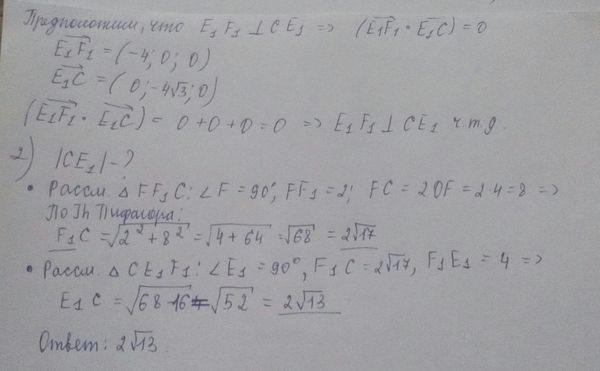 Предположим, что E₁F₁ ⊥ CE₁ => (E₁F₁ · E₁C) = 0
E₁F₁ = (-4; 0; 0)
E₁C = (0; -4√3; 0)
(E₁F₁ · E₁C) = 0+0+0=0 => E₁F₁ ⊥ CE₁ ч.т.д.
2) |CE₁| - ?
• Рассм. △ FF₁C: ∠F = 90°, FF₁ = 2; FC = 2OF = 2·4=8 =>
По Th Пифагора:
F₁C = √2²+8² = √4+64 = √68 = 2√17
• Рассм. △ CE₁F₁: ∠E₁ = 90°, F₁C = 2√17, F₁E₁ = 4 =>
E₁C = √68-16 = √52 = 2√13
Ответ: 2√13.